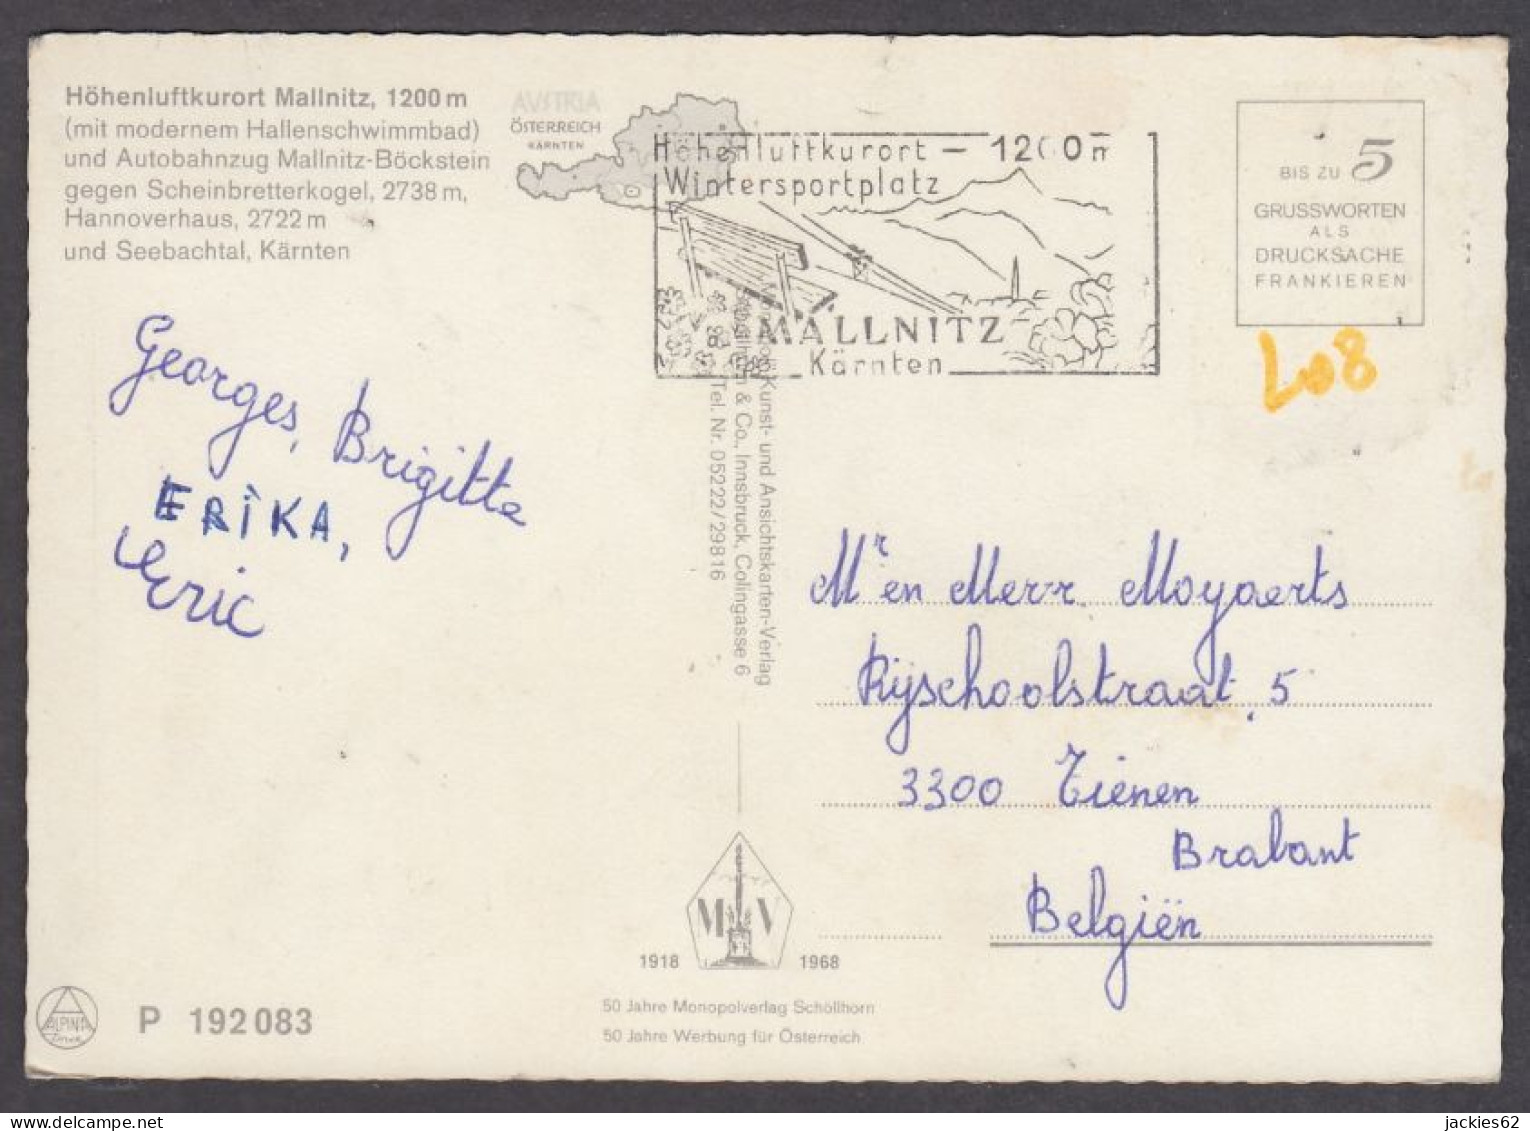 Höhenluftkurort Mallnitz, 1200 m
(mit modernem Hallenschwimmbad)
und Autobahnzug Mallnitz-Böckstein
gegen Scheinbretterkogel, 2738 m,
Hannoverhaus, 2722 m
und Seebachtal, Kärnten
AVSTRIA
ÖSTERREICH
KÄRNTEN
Höhenluftkurort - 1200m
Wintersportplatz
MALLNITZ
Kärnten
BIS ZU 5
GRUSSWORTEN
ALS
DRUCKSACHE
FRANKIEREN
L008
Georges, Brigitte
ERIKA,
Eric
Kunst- und Ansichtskarten-Verlag
& Co., Innsbruck, Colingasse 6
Tel. Nr. 05222/29816
Mr en Mevr Moyaerts
Rijschoolstraat, 5
3300 Tienen
Brabant
Belgiën
M V
1918 1968
50 Jahre Monopolverlag Schöllhorn
50 Jahre Werbung für Österreich
ALPINA
Druck
P 192083
jackies62